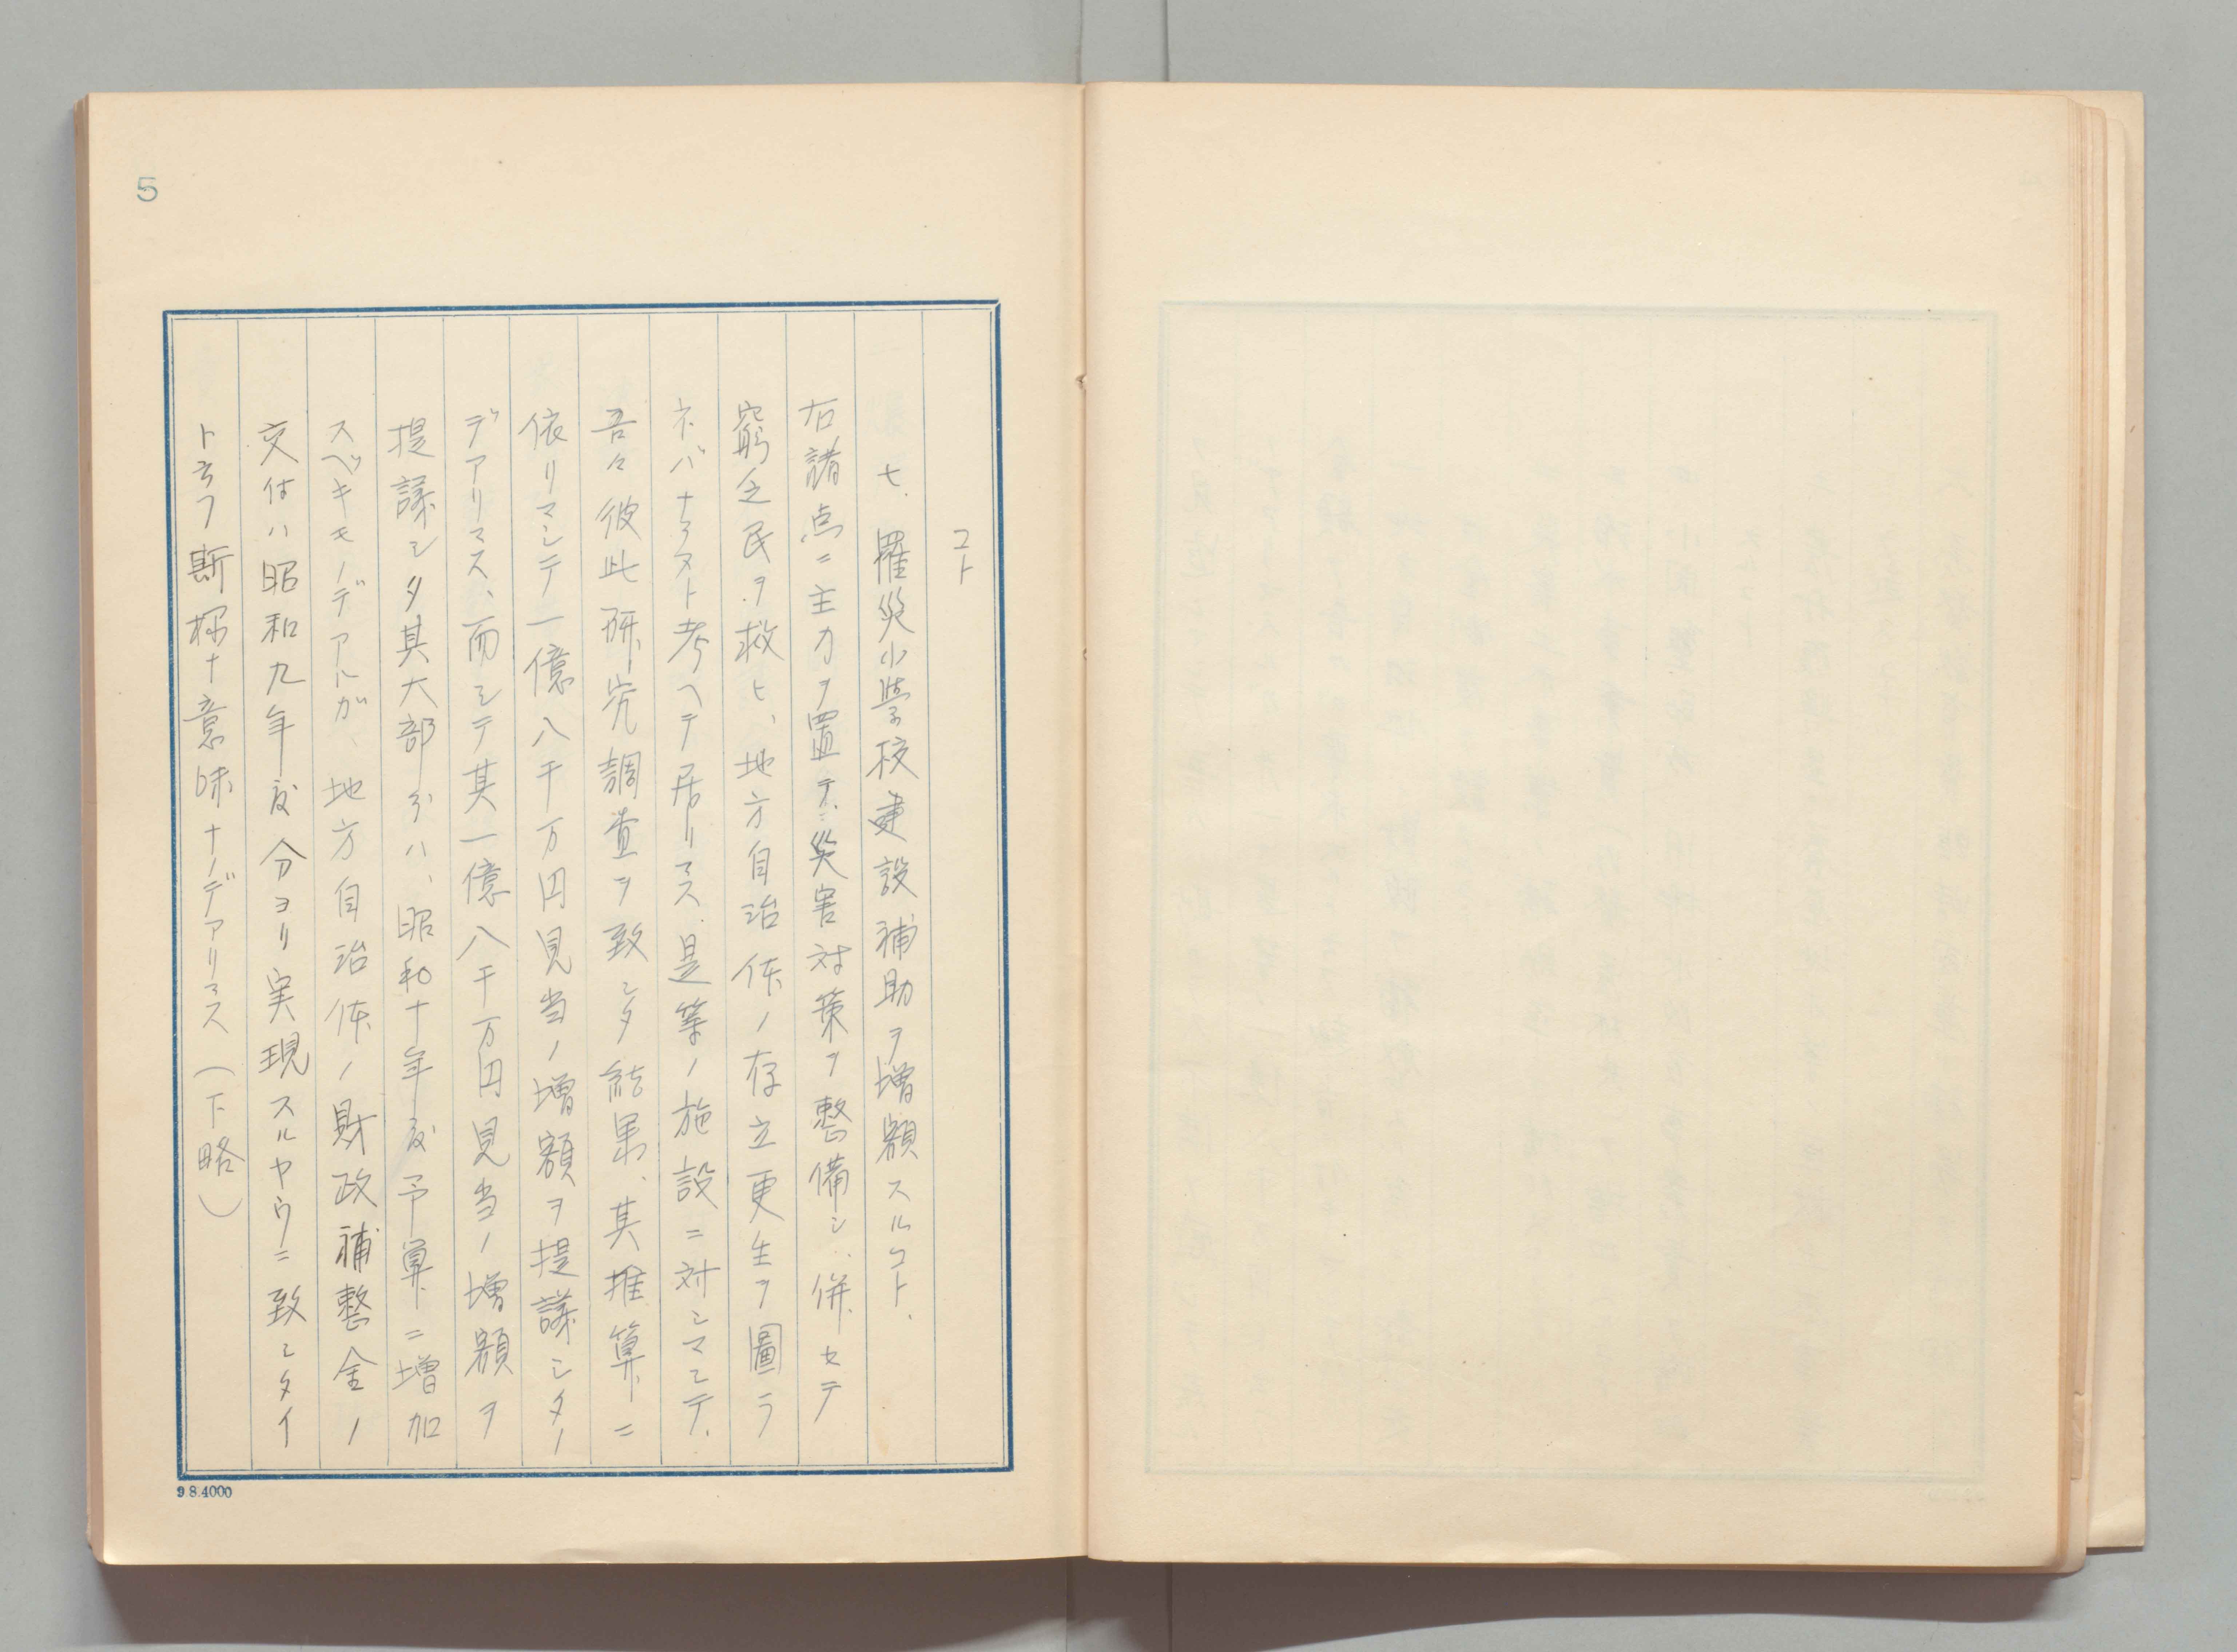 5
コト
七、罹災小學校建設補助ヲ増額スルコト、
右諸点ニ主力ヲ置テ、災害対策ヲ整備シ、併セテ
窮乏民ヲ救ヒ、地方自治体ノ存立更生ヲ圖ラ
ネバナラヌト考ヘテ居リマス、是等ノ施設ニ対シマシテ、
吾々彼此研究調査ヲ致シタ結果、其推算ニ
依リマシテ一億八千万円見当ノ増額ヲ提議シタノ
デアリマス、而シテ其一億八千万円見当ノ増額ヲ
提議シタ其大部分ハ、昭和十年度予算ニ増加
スベキモノデアルガ、地方自治体ノ財政補整金ノ
交付ハ昭和九年度分ヨリ実現スルヤウニ致シタイ
ト云フ斯様ナ意味ナノデアリマス（下略）
9.8.4000